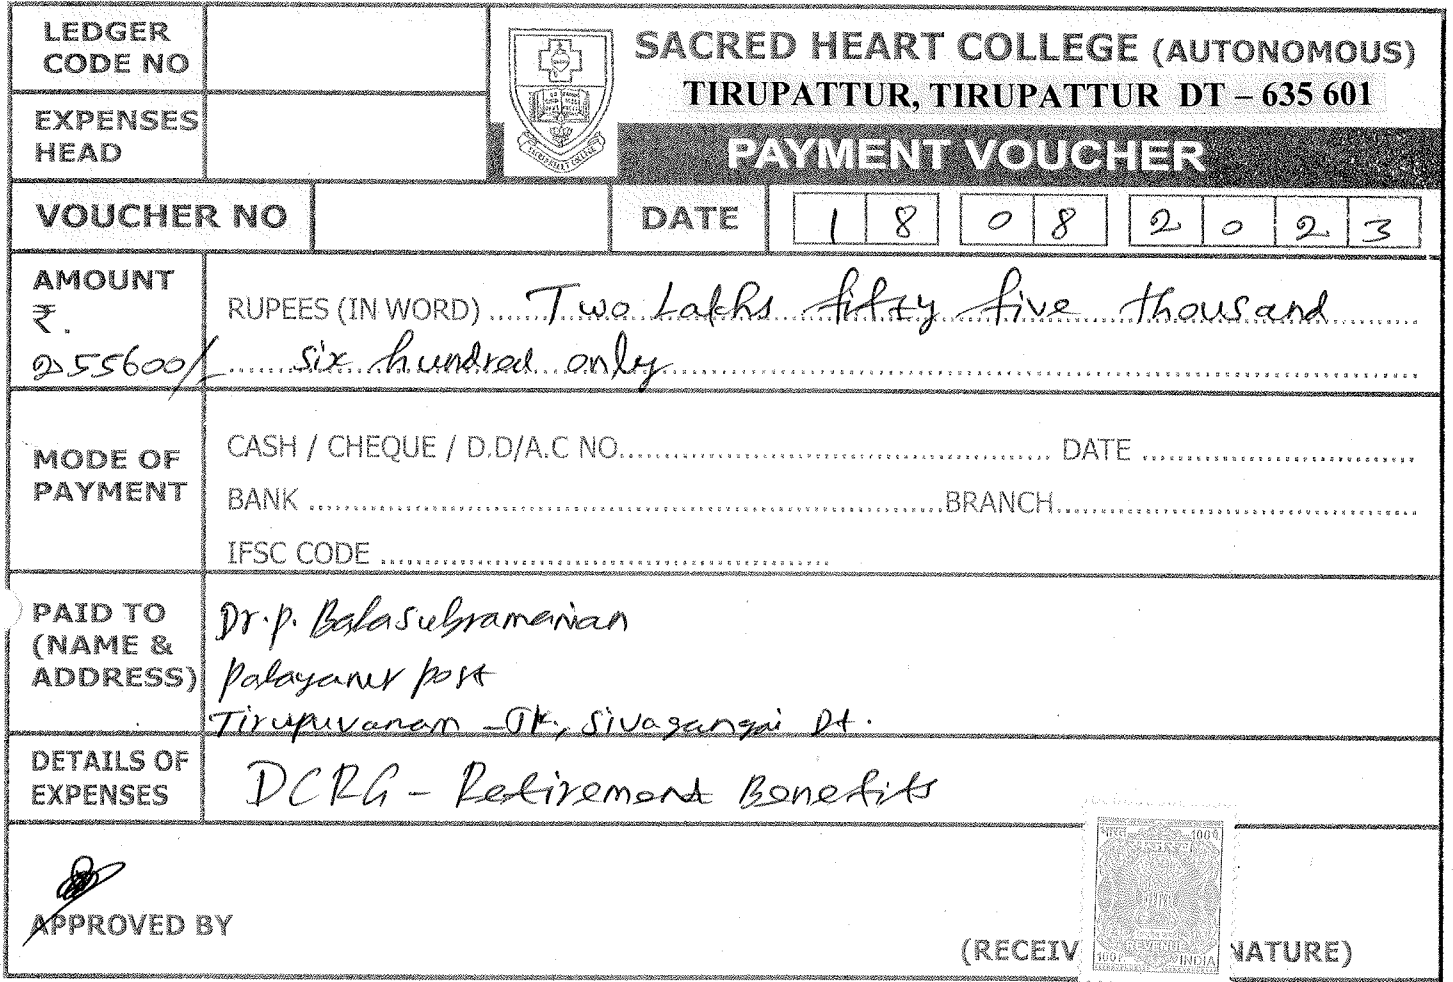 LEDGER
CODE NO
SACRED HEART COLLEGE (AUTONOMOUS)
TIRUPATTUR, TIRUPATTUR DT – 635 601
EXPENSES
HEAD
PAYMENT VOUCHER
VOUCHER NO
DATE 18 08 2023
AMOUNT
₹.
255600/-
RUPEES (IN WORD) Two Lakhs fifty five thousand
six hundred only
MODE OF
PAYMENT
CASH / CHEQUE / D.D/A.C NO. DATE
BANK BRANCH
IFSC CODE
PAID TO
(NAME &
ADDRESS)
Dr. P. Balasubramanian
Palayanur post
Tirupuvanam - Tk., Sivagangai Dt.
DETAILS OF
EXPENSES
DCRG - Retirement Benefits
APPROVED BY
100P.
REVENUE
100P. INDIA
(RECEIV NATURE)